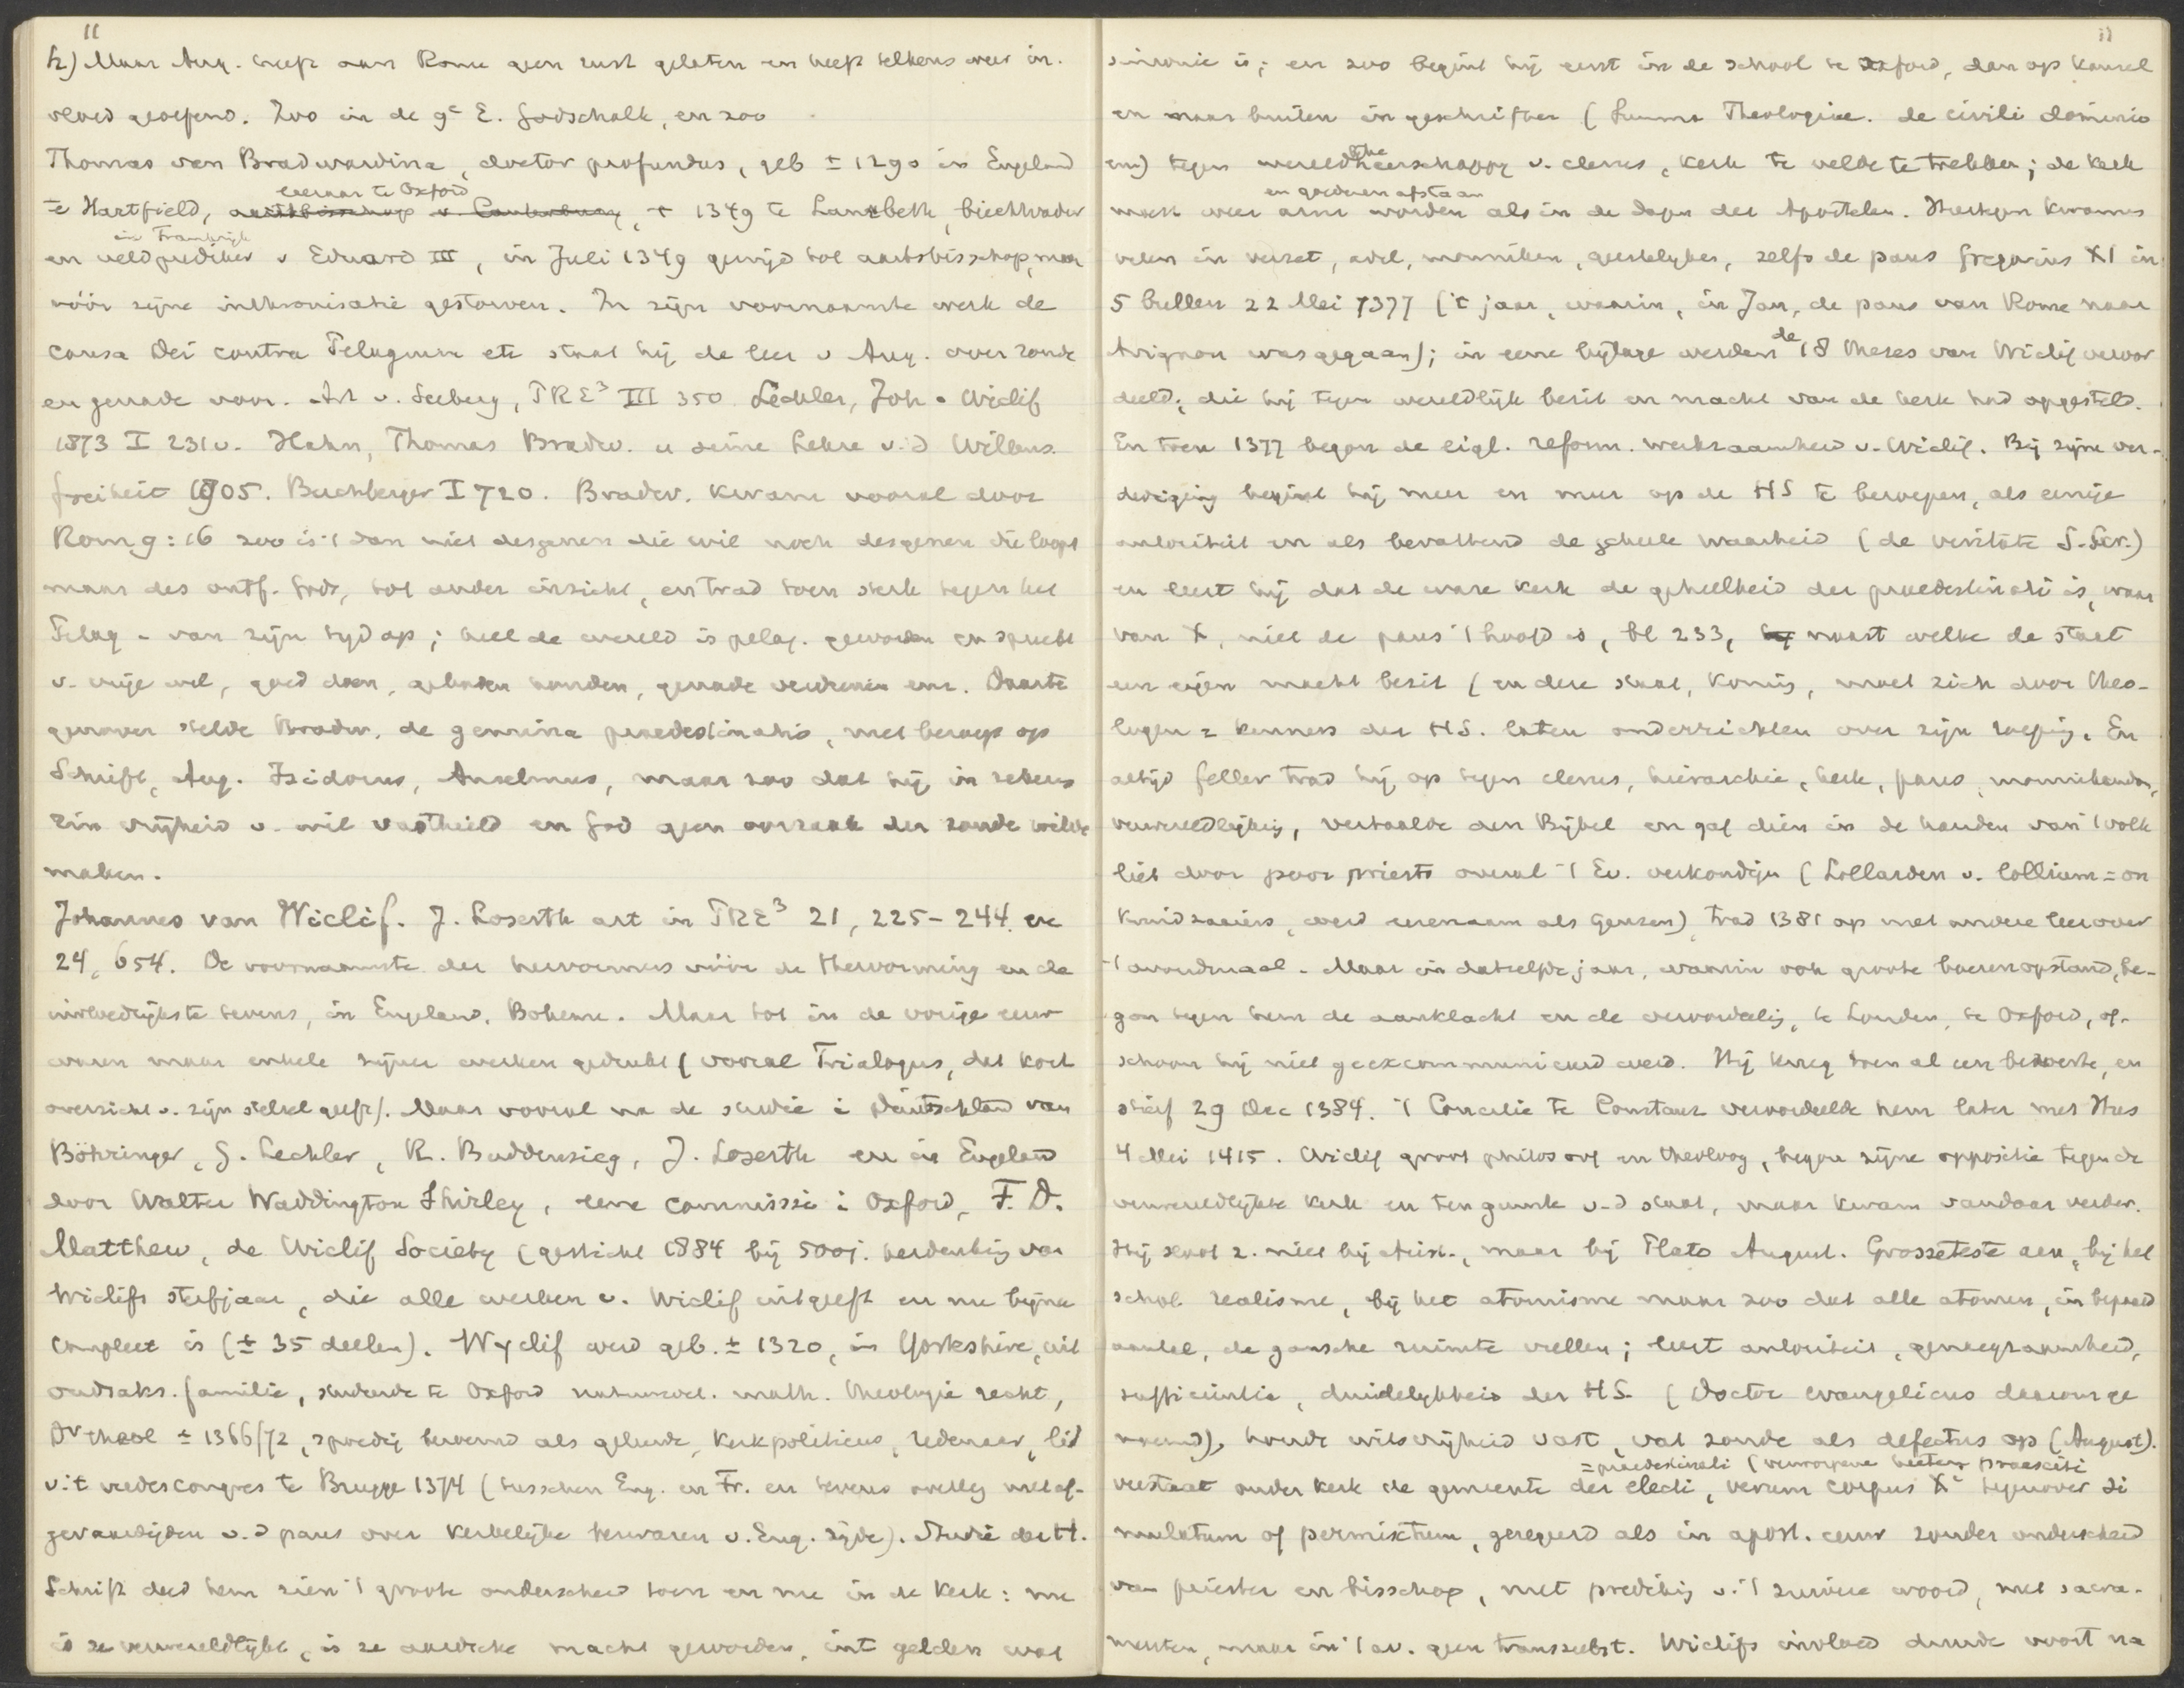 11
h) Maar Aug. heeft aan Rome geen rust gelaten en heeft telkens weer in-
vloed geoefend. Zoo in de 9e E. Godschalk, en zoo
Thomas van Bradwardina, doctor profundus, geb ± 1290 in Engeland
leeraar te Oxford
te Hartfield, aartsbisschop v. Canterbury, + 1349 te Lambeth, biechtvader
in Frankrijk
en veldprediker v Eduard III, in Juli 1349 gewijd tot aartsbisschop, maar
vóór zijne inthronisatie gestorven. In zijn voornaamste werk de
causa Dei contra Pelagium etc staat hij de leer v Aug. over zonde
en genade voor. Art v. Seeberg, PRE3 III 350 Lechler, Joh. Wiclif
1873 I 231v. Hahn, Thomas Bradw. u seine Lehre v. d Willens-
freiheit 1905. Buchberger I 720. Bradw. kwam vooral door
Rom 9:16 zoo is 't dan niet desgenen die wil noch desgenen die loopt
maar des ontf. Gods, tot ander inzicht, en trad toen sterk tegen het
Pelag. van zijn tijd op; heel de wereld is pelag. geworden en spreekt
v. vrije wil, goed doen, geboden houden, genade verdienen enz. Daarte
genover stelde Bradw. de gemina praedestinatio, met beroep op
Schrift, Aug. Isidorus, Anselmus, maar zoo dat hij in zekere
zin vrijheid v. wil vasthield en God geen oorzaak der zonde wilde
maken.
Johannes van Wiclif. J. Loserth art in PRE3 21, 225-244. en
24, 654. De voornaamste der hervormers vóór de Hervorming en de
invloedrijkste tevens, in Engeland, Boheme. Maar tot in de vorige eeuw
waren maar enkele zijner werken gedrukt (vooral Trialogus, dat kort
overzicht v. zijn stelsel geeft). Maar vooral na de studie i Deutschland van
Böhringer, G. Lechler, R. Buddensieg, J. Loserth en in Engeland
door Walter Waddington Shirley, eene commissie i Oxford, F. D.
Matthew, de Wiclif Society (gesticht 1884 bij 500j. herdenking van
Wiclifs sterfjaar, die alle werken v. Wiclif uitgeeft en nu bijna
compleet is (± 35 deelen). Wyclif werd geb. ± 1320, in Yorkshire, uit
oudsaks. familie, studeerde te Oxford natuurwet. math. theologie recht,
Dr theol ± 1366/72, spoedig beroemd als geleerde, kerkpoliticus, redenaar, lid
v. 't vredescongres te Brugge 1374 (tusschen Eng. en Fr. en tevens overleg met af-
gevaardigden v. d paus over kerkelijke bezwaren v. Eng. zijde). Studie der H.
Schrift deed hem zien 't groote onderscheid toen en nu in de kerk: nu
is ze verwereldlijkt, is ze aardsche macht geworden, int gelden wat
11
simonie is; en zoo begint hij eerst in de school te Oxford, dan op kansel
en naar buiten in geschriften (Summa Theologiae. de civili dominio
enz) tegen wereldsche heerschappy v. clerus, kerk te velde te trekken; de kerk
en goederen afstaan
moet weer arm worden als in de dagen der Apostelen. Hiertegen kwamen
velen in verzet, adel, monniken, geestelykes, zelfs de paus Gregorius XI in
5 bullen 22 Mei 1377 ('t jaar, waarin, in Jan, de paus van Rome naar
Avignon was gegaan); in eene bijlage werden de 18 theses van Wiclif veroor
deeld, die hij tegen wereldlijk bezit en macht van de kerk had opgesteld.
En toen 1377 begon de eigl. reform. werkzaamheid v. Wiclif. Bij zijne ver-
dediging begint hij meer en meer op de HS te beroepen, als eenige
autoriteit en als bevattend de geheele waarheid (de veritate S. Scr.)
en leert hij dat de ware kerk de geheelheid der praedestinati is, waar
van X, niet de paus 't hoofd is, bl 233, naast welke de staat
een eigen macht bezit (en deze staat, koning, moet zich door theo-
logen = kenners der HS. laten onderrichten over zijn roeping. En
altijd feller trad hij op tegen clerus, hierarchie, kerk, paus, monnikendom,
verwereldlijking, vertaalde den Bijbel en gaf dien in de handen van 't volk
liet door poor priests overal 't Ev. verkondigen (Lollarden v. lollium = on
kruid zaaiers, werd eerenaam als Geuzen), trad 1381 op met andere leer over
't avondmaal. Maar in datzelfde jaar, waarin ook groote boerenopstand, be-
gon tegen hem de aanklacht en de veroordeeling, te Londen, te Oxford, of-
schoon hij niet geexcommuniceerd werd. Hij kreeg toen al een beroerte, en
stierf 29 Dec 1384. 't Concilie te Constanz veroordeelde hem later met Hus
4 Mei 1415. Wiclif groot philosoof en theoloog, begon zijne oppositie tegen de
verwereldlijkte kerk en ten gunste v. d staat, maar kwam vandaar verder.
Hij sloot z. niet bij Arist., maar bij Plato August. Grosseteste aan, bij het
schol. realisme, bij het atomisme maar zoo dat alle atomen, in bepaald
aantal, de gansche ruimte vullen; leert autoriteit, genoegzaamheid,
sufficientia, duidelykheid der HS. (Doctor evangelicus daarom ge
noemd), houdt wilsvrijheid vast, vat zonde als defectus op (August).
= praedestinati (verworpene heeten praesciti
verstaat onder kerk de gemeente der electi, verum corpus Xi tegenover si
mulatum of permixtum, geregeerd als in apost. eeuw zonder onderscheid
van priester en bisschop, met prediking v. 't zuivere woord, met sacra-
menten, maar in 't av. geen transsubst. Wiclifs invloed duurde voort na